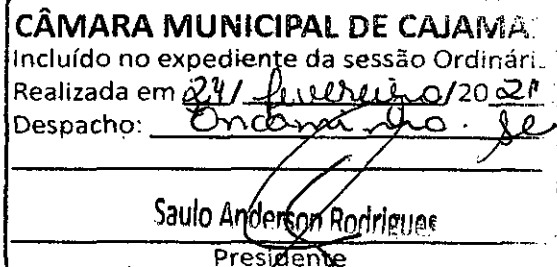 CÂMARA MUNICIPAL DE CAJAMA
Incluído no expediente da sessão Ordinári
Realizada em 24/ fevereiro/20 21
Despacho: Encaminho. se
Saulo Anderson Rodrigues
Presidente